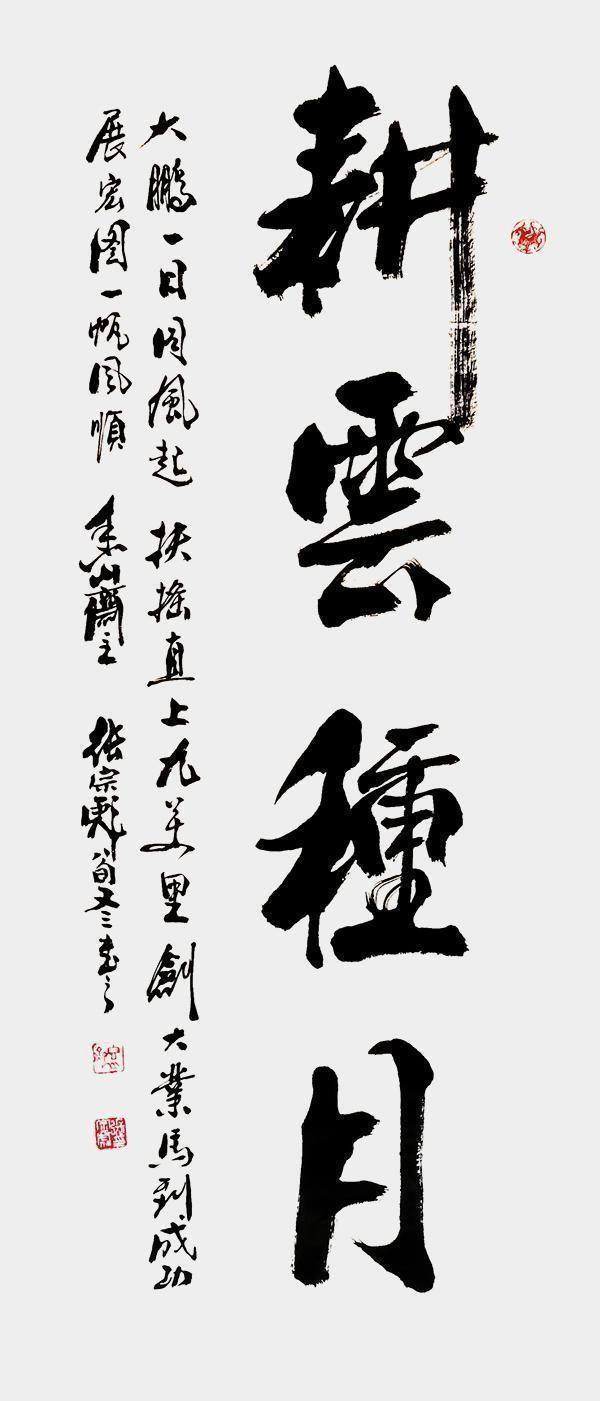 耕雲種月
大鵬一日同風起 扶搖直上九萬里 創大業馬到成功
展宏图一帆风順 山齋主 張宗 冬書